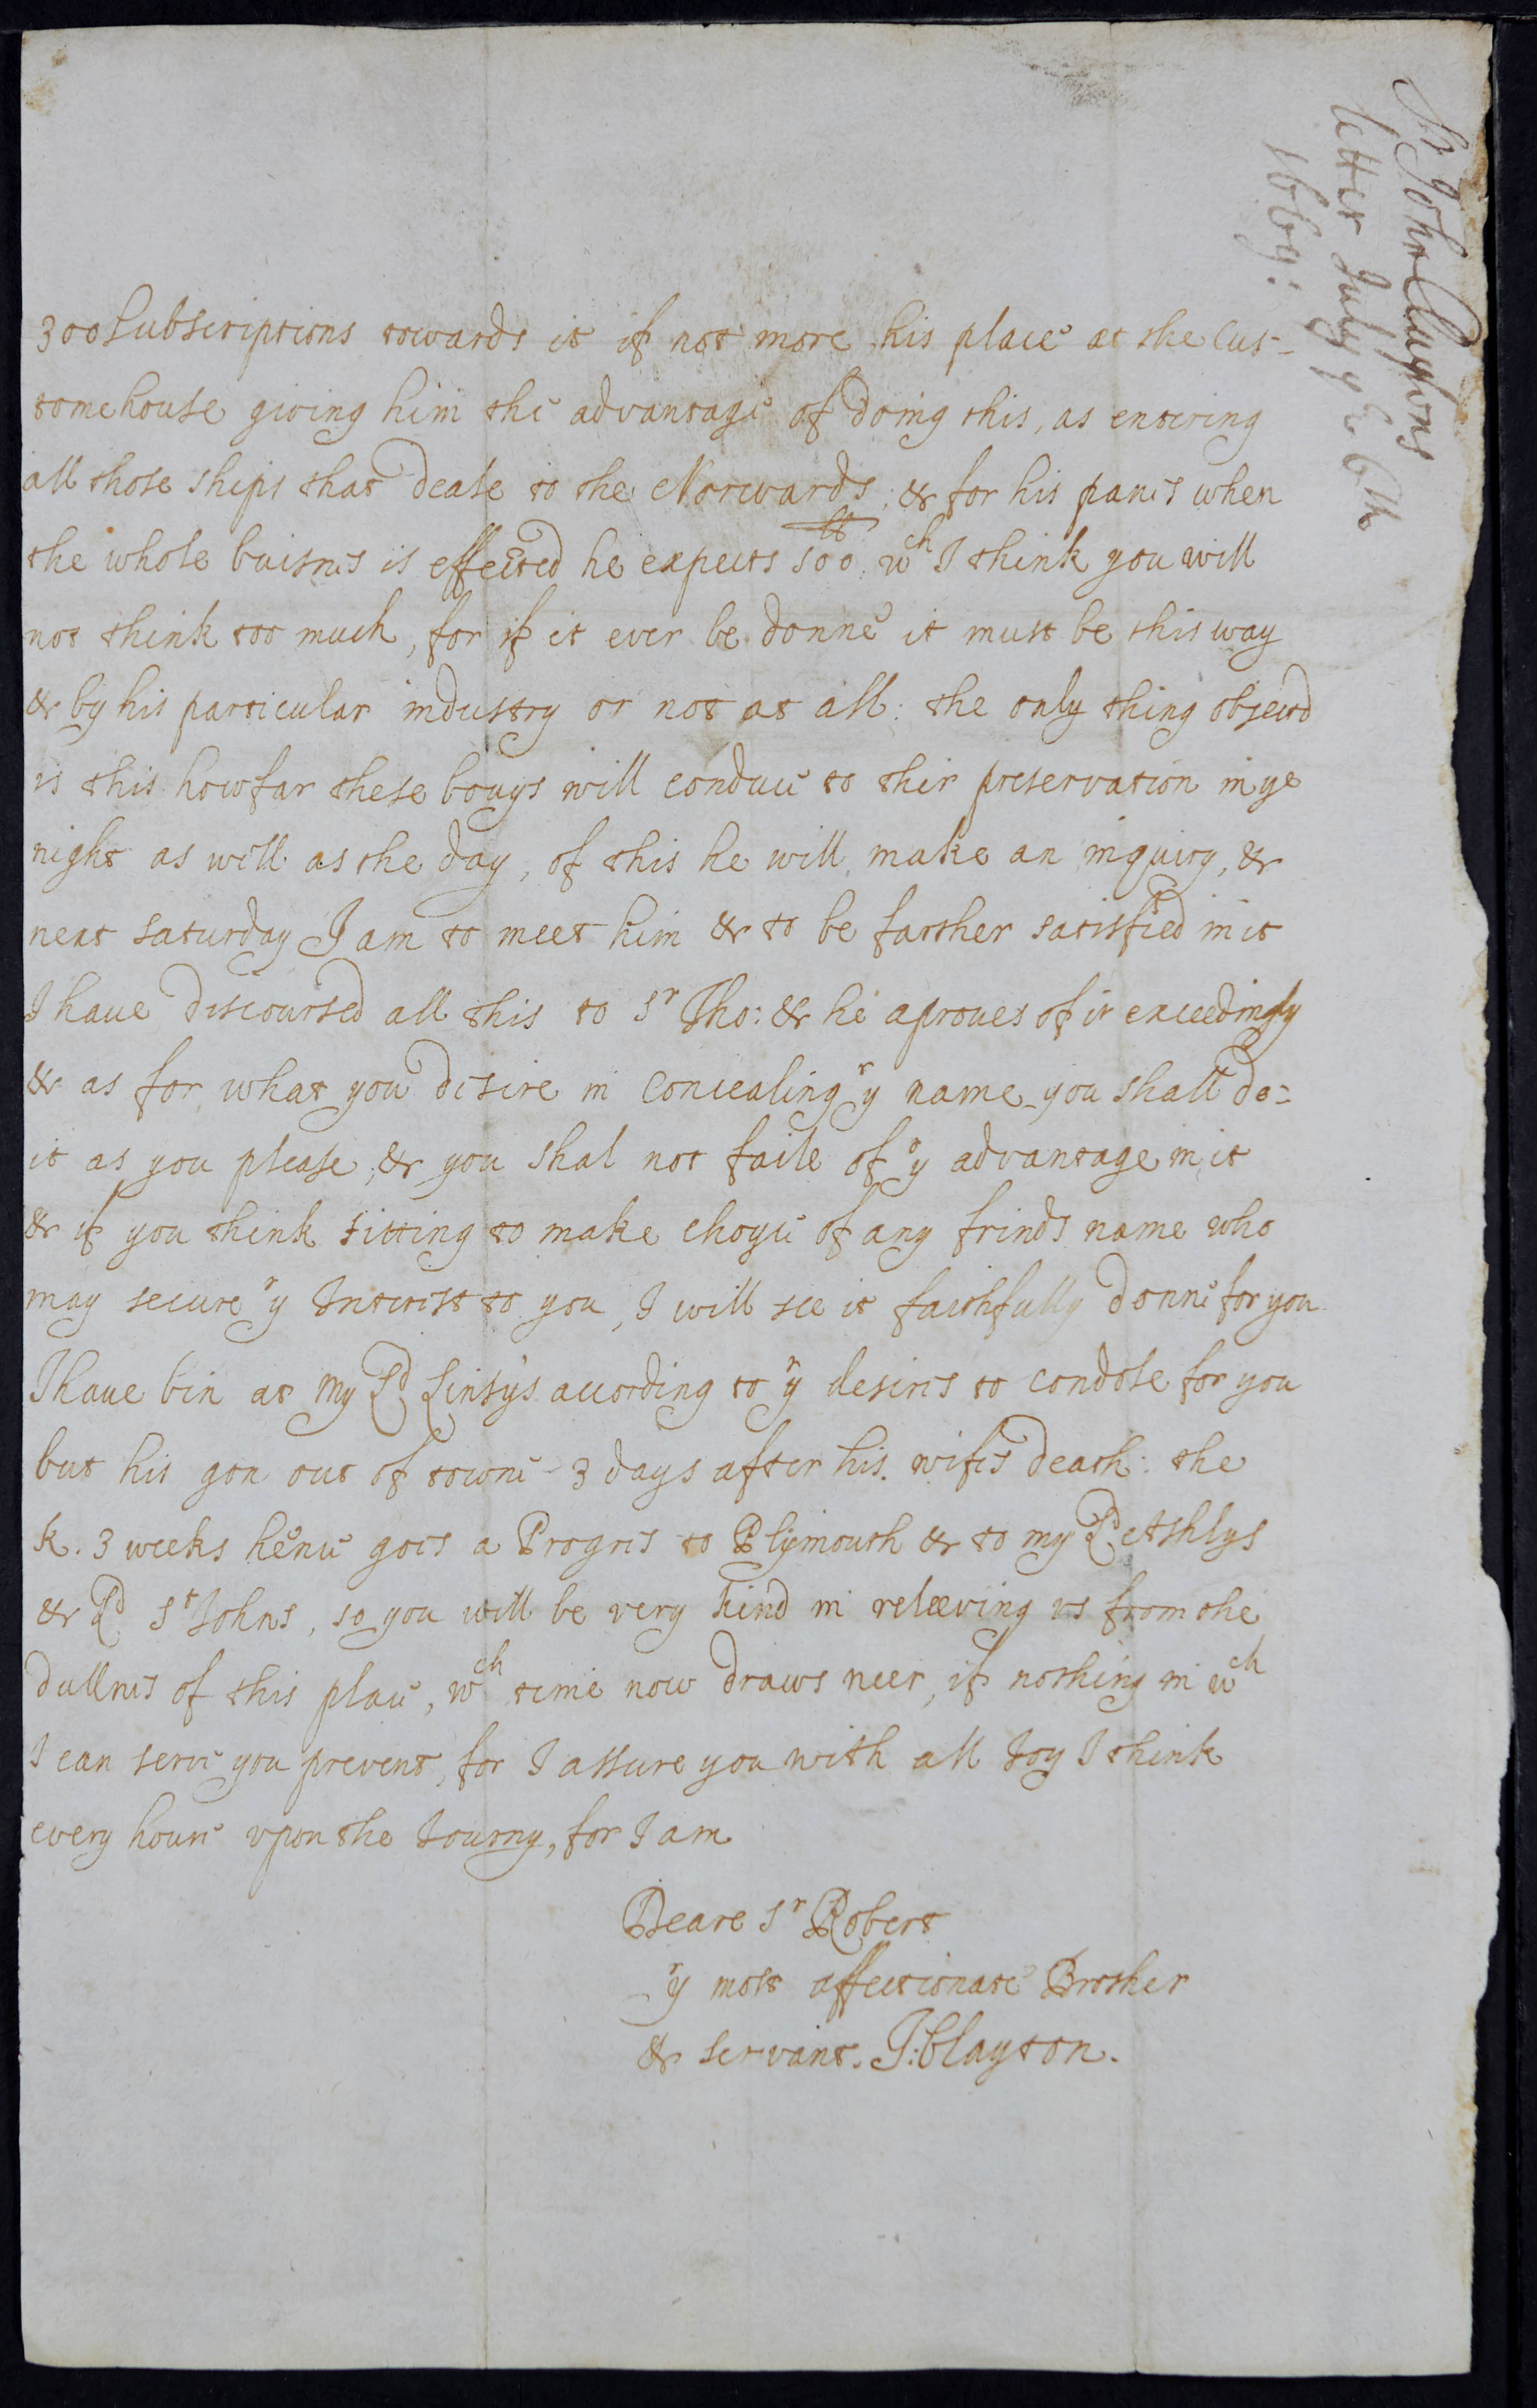 Sr John Claytons
letter July ye 6th
1669:
300 subscriptions towards it if not more, his place at the Cus-
tomehouse giving him the advantage of doing this, as entering
all those ships that deale to the Norwards; & for his panes when
the whole buisnes is effected he expects 500lb. wch I think you will
not think too much, for if it ever be donne it must be this way
& by his particular industry or not at all: the only thing objectd
is this how far these bouys will conduce to their preservation in ye
night as well as the day, of this he will make an inquiry, &
next saturday I am to meet him & to be farther satisfied in it
I haue discoursed all this to Sr Tho: & he aproues of it exceedingly
& as for what you desire in concealing yr name you shall do=
it as you please, & you shal not faile of yr advantage in it
& if you think fitting to make choyce of any frinds name who
may secure yr Interest to you, I will see it faithfully donne for you
I haue bin at my Ld Linsys according to yr desires to condole for you
but his gon out of towne 3 days after his wifes death: the
k. 3 weeks hence goes a Progres to Plymouth & to my Ld Ashlys
& Ld St Johns, so you will be very kind in releeving us from the
dullnes of this place, wch time now draws neer, if nothing in wch
I can serve you prevent, for I assure you with all Joy I think
every houre upon the Journy, for I am
Deare Sr Robert
yr most affectionate Brother
& servant. J: Clayton.